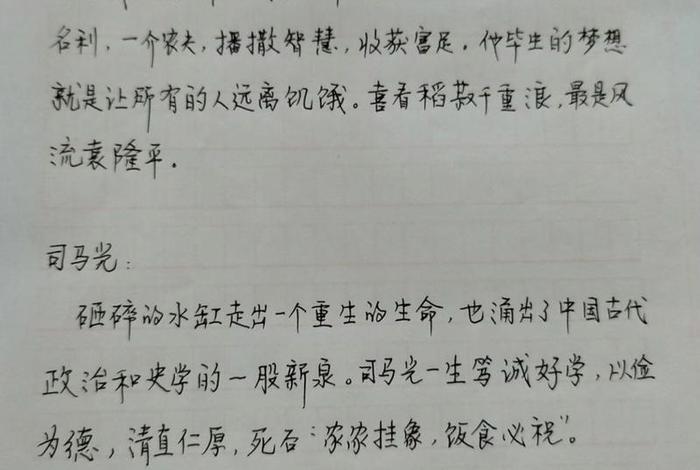 名利,一个农夫,播撒智慧,收获富足。他毕生的梦想
就是让所有的人远离饥饿。喜看稻菽千重浪,最是风
流袁隆平。
司马光:
砸碎的水缸走出一个重生的生命,也涌出了中国古代
政治和史学的一股新泉。司马光一生笃诚好学,以俭
为德,清直仁厚,死后“家家挂象,饭食必祝”。